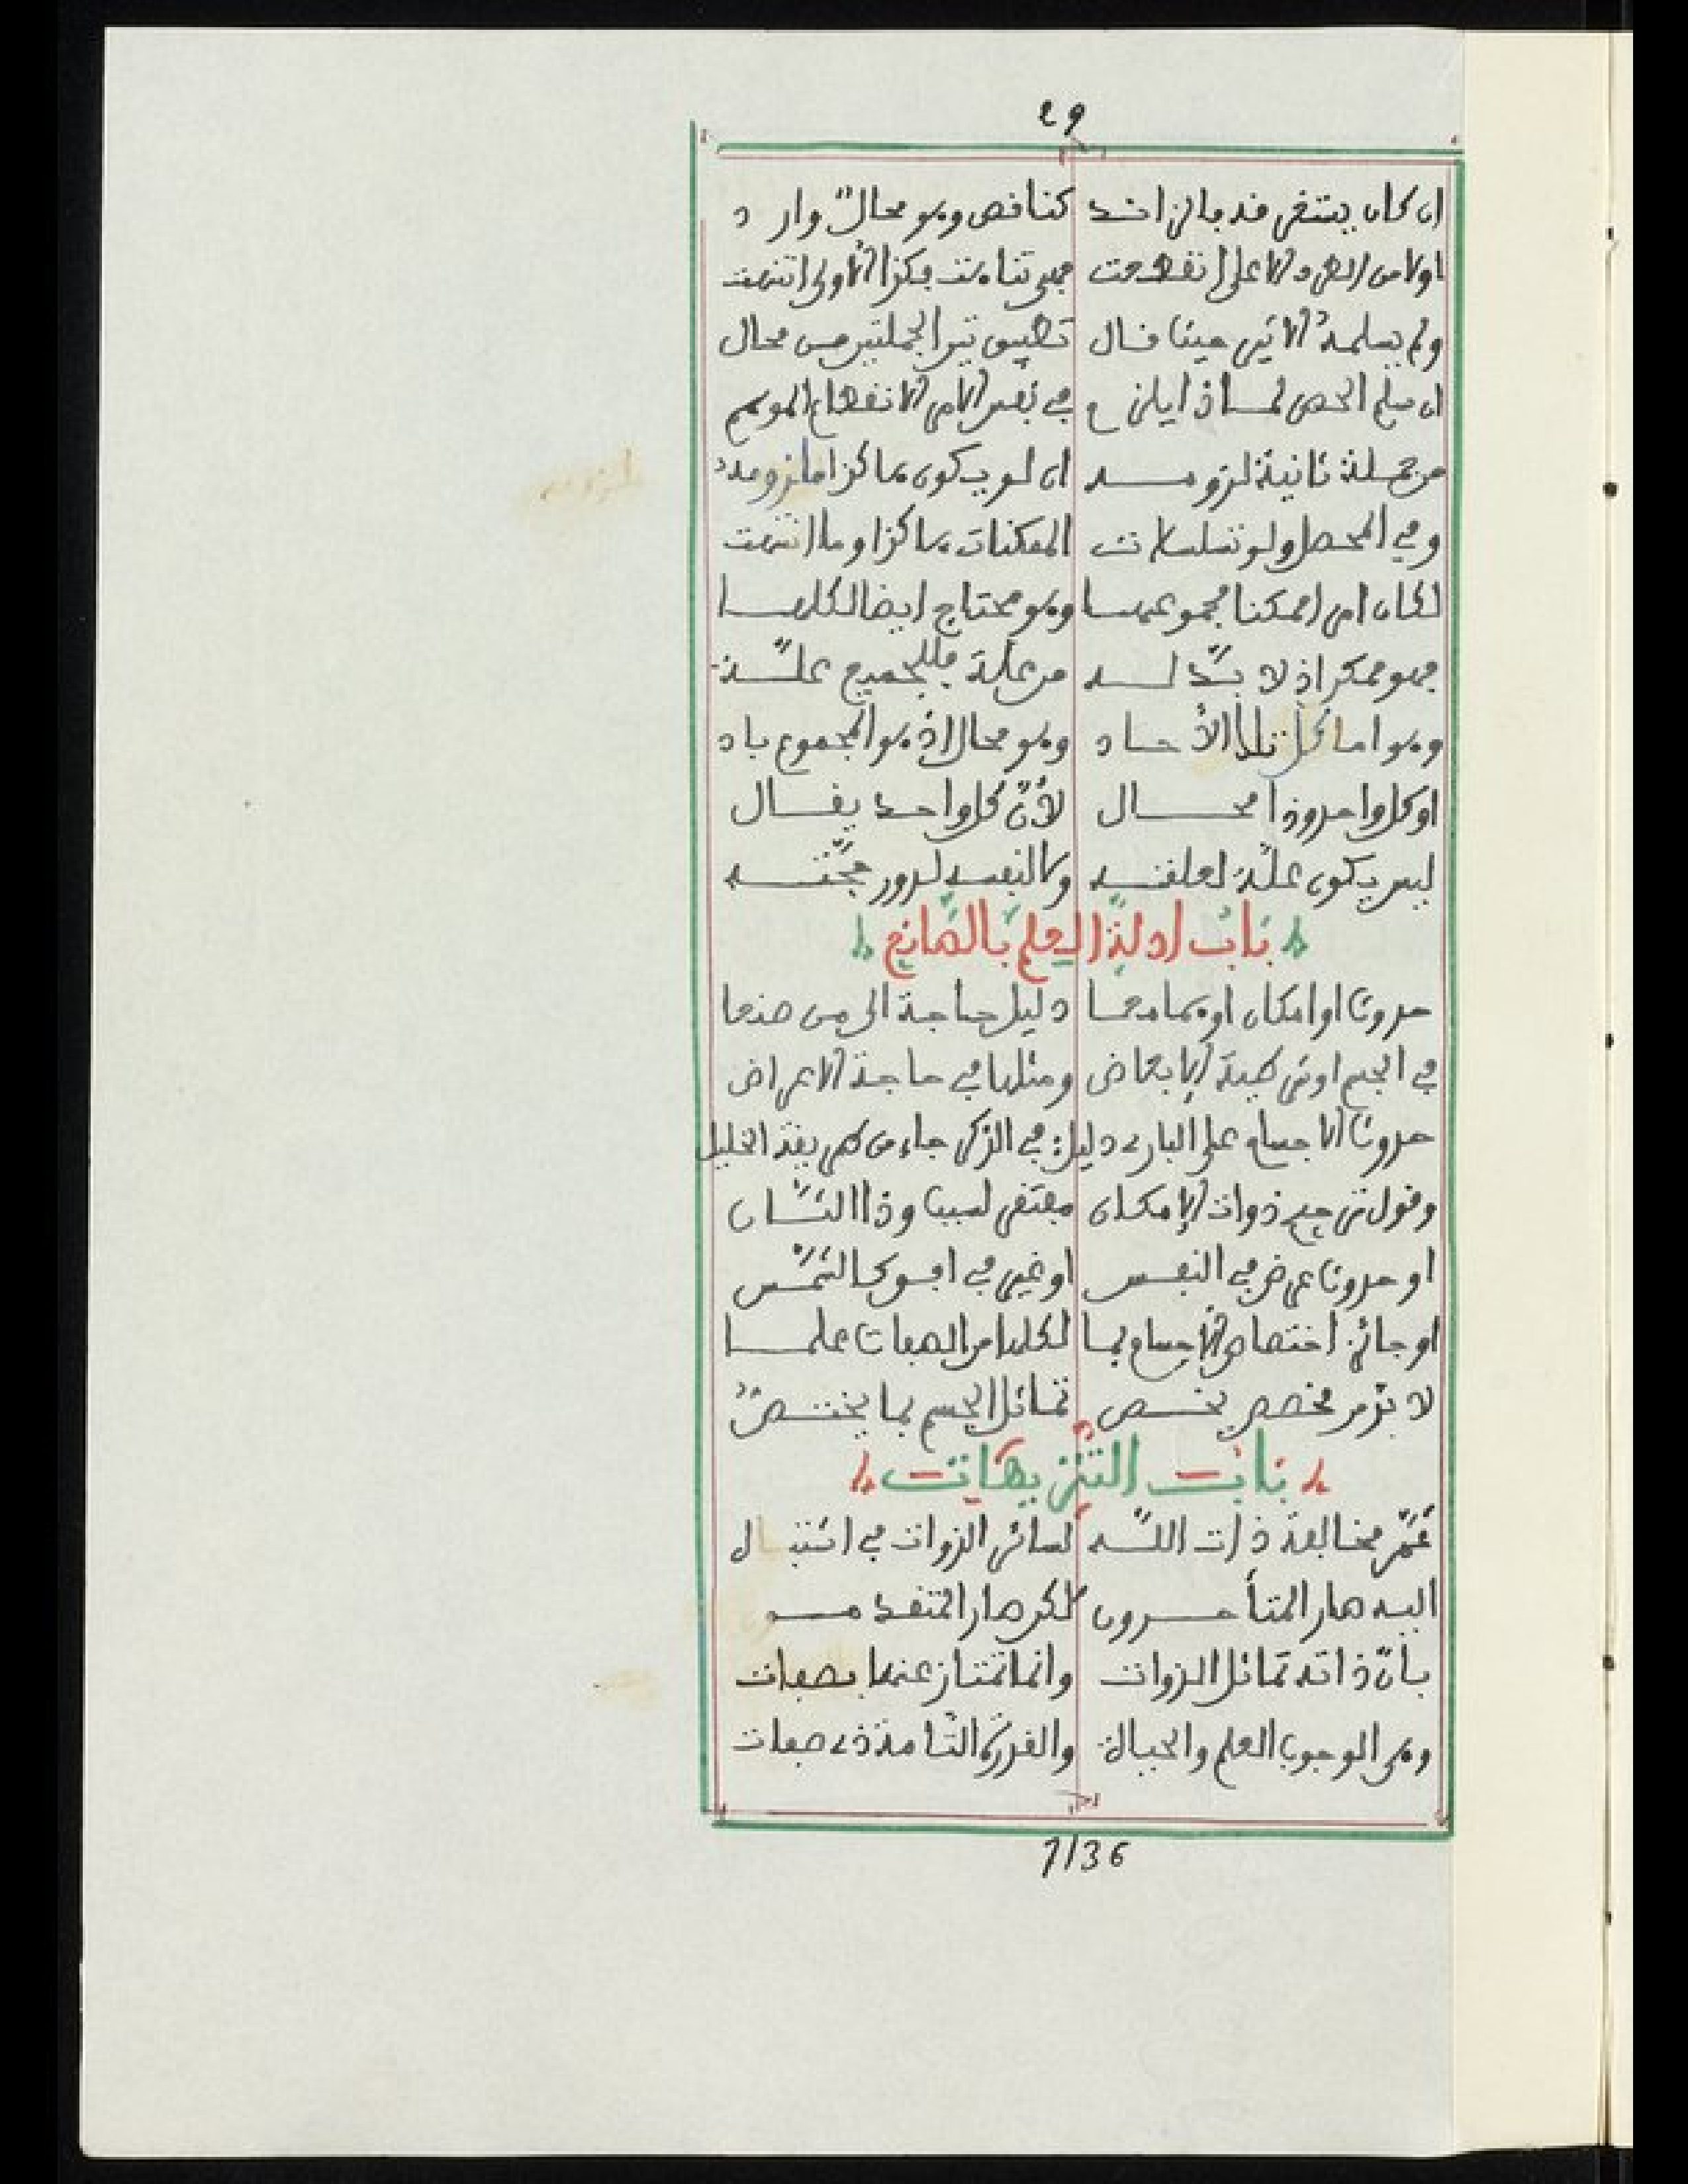 29
ان كان ينتهي فدبالزائد كناقص وهو محال وارد
اولا من الطرد الاعلى انقطعت فهي تناهت هكذا الأولى انتهت
ولم يسلمه الأثير حينا قال تطبيق تين الجملتين من محال
ان سلم الخصم لما ذا يلزم في نفس الأمر الانقطاع الموهم
من جملة ثانية لزومه ان لو يكون هاكذا ملزومه
وفي المحصل ولو تسلسلت الممكنات هاكذا وما انتهت
لكان امرا ممكنا مجموعها وهو محتاج ايضا لكلها
فهو ممكن اذ لا بد له من علة فللجميع علة
وهو اما كل تلك الآحاد وهو محال اذ هو المجموع باد
او كل واحد وذا محال لأن كل واحد يقال
ليس يكون علة لعلته ولا لنفسه لدور حجته
باب ادلة العلم بالصانع
حدوث او امكان او هما معا دليل حاجة الى من صنعا
في الجسم او تركيبة الابعاض ومثلها في حاجة الاعراض
حدوث الاجسام على البارء دليل: في الذكر جاء من طريقة الخليل
وقول ترجيح ذوات الإمكان مفتقر لسبب وذا الشان
او حدوث عرض في النفس او غير في افق كالشمس
او جائز اختصاص الاجسام بما لكلها من الصفات علما
لا بد من مخصص يخص تماثل الجسم بما يختص
باب التنزيهات
عمر مخالفة ذات الله لسائر الذوات في اشتباه
اليه صار المتأخرون لكن صار المتقدمون
بأن ذاته تماثل الذوات وانما تمتاز عنها بصفات
وهي الوجوب العلم والحياة والقدرة التامة ذء صفات
1136